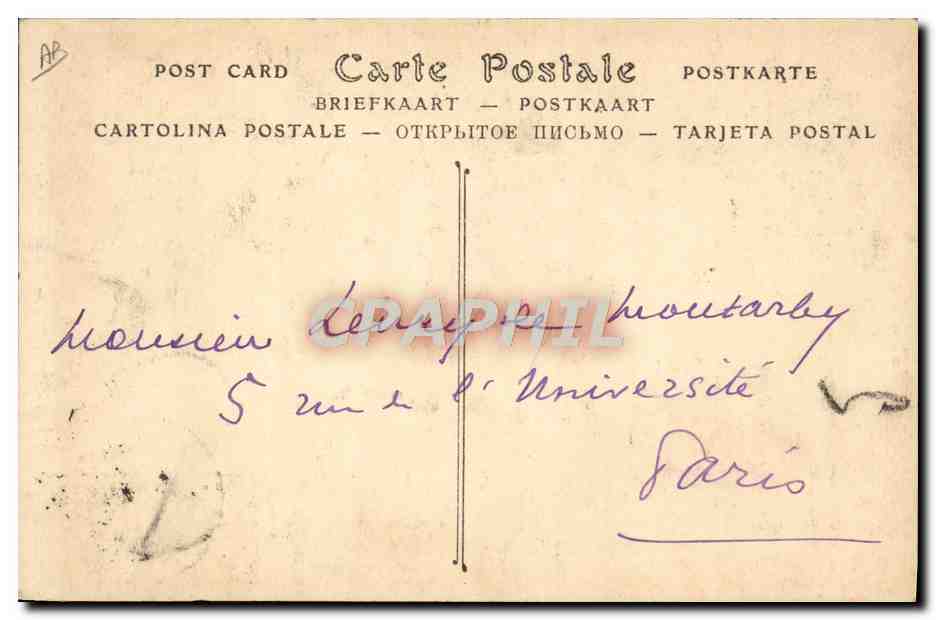 AB
POST CARD Carte Postale POSTKARTE
BRIEFKAART — POSTKAART
CARTOLINA POSTALE — ОТКРЫТОЕ ПИСЬМО — TARJETA POSTAL
CPAPHIL
Monsieur de Moutarby
5 rue de l'Université
Paris